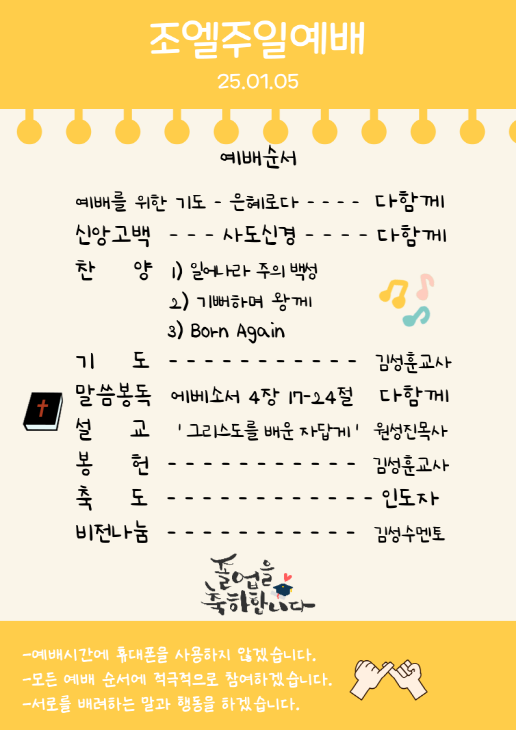 조엘주일예배
25.01.05
예배순서
예배를 위한 기도 - 은혜로다 - - - - 다함께
신앙고백 - - - 사도신경 - - - - 다함께
찬 양 1) 일어나라 주의 백성
2) 기뻐하며 왕께
3) Born Again
기 도 - - - - - - - - - - - 김성훈교사
말씀봉독 에베소서 4장 17-24절 다함께
설 교 '그리스도를 배운 자답게' 원성진목사
봉 헌 - - - - - - - - - - - 김성훈교사
축 도 - - - - - - - - - - - - 인도자
비전나눔 - - - - - - - - - - - 김성수멘토
졸업을
축하합니다
-예배시간에 휴대폰을 사용하지 않겠습니다.
-모든 예배 순서에 적극적으로 참여하겠습니다.
-서로를 배려하는 말과 행동을 하겠습니다.